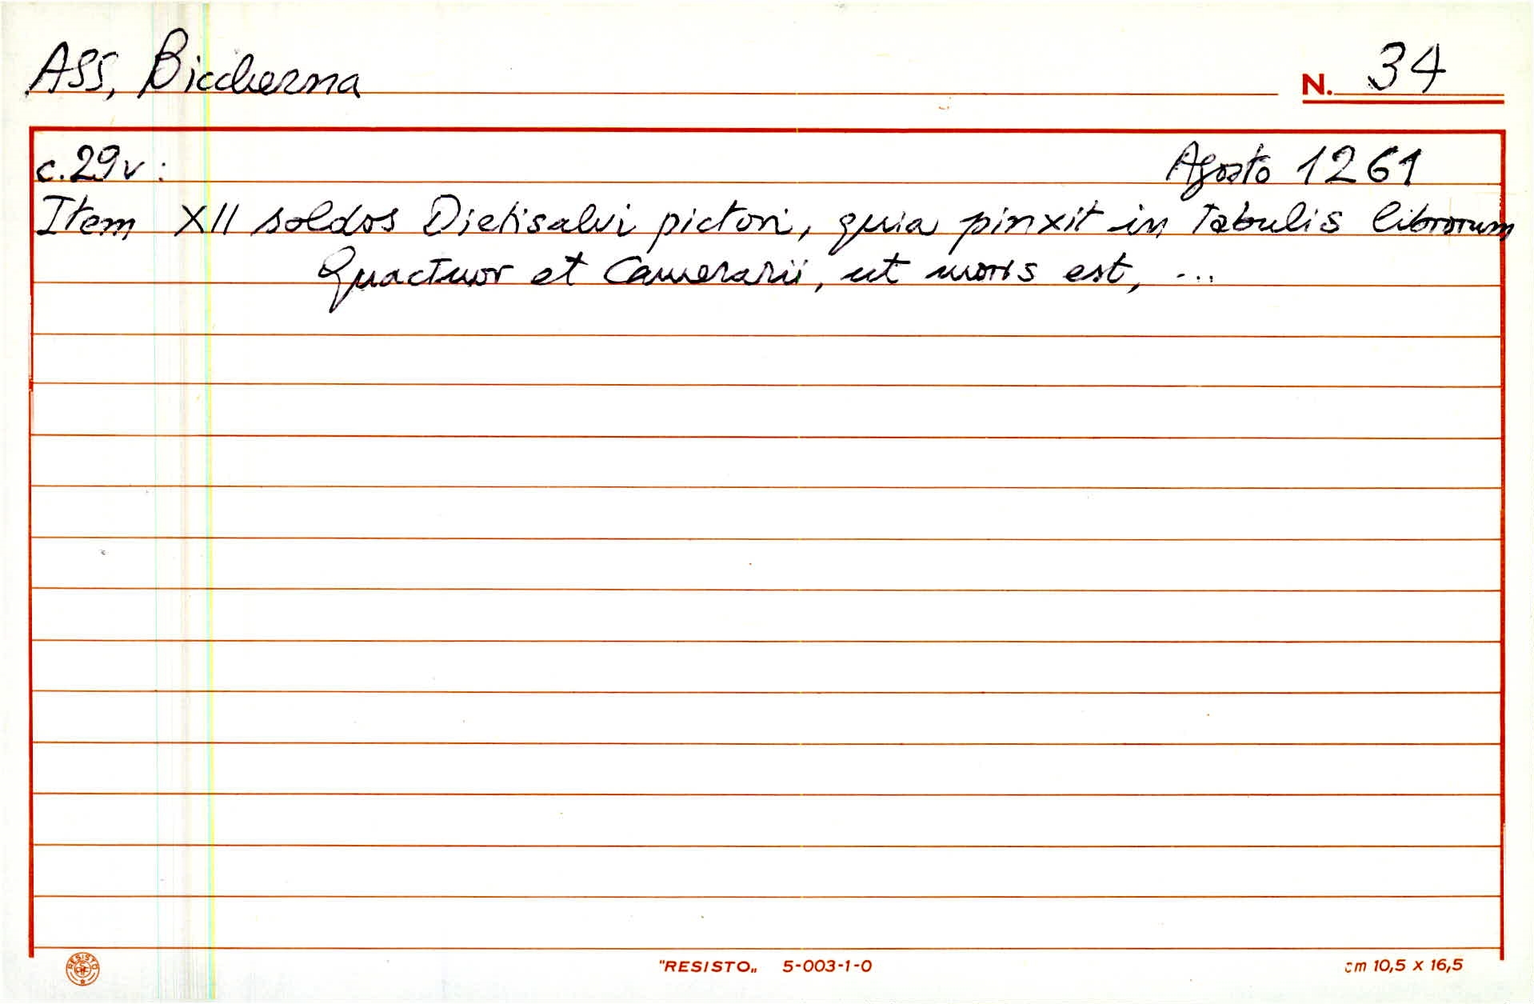 ASS, Biccherna
N. 34
c.29v: Agosto 1261
Item XII soldos Dietisalvi pictori, quia pinxit in tabulis librorum
Quactuor et Camerarii, ut moris est, ...
RESISTO
"RESISTO„ 5-003-1-0
cm 10,5 x 16,5